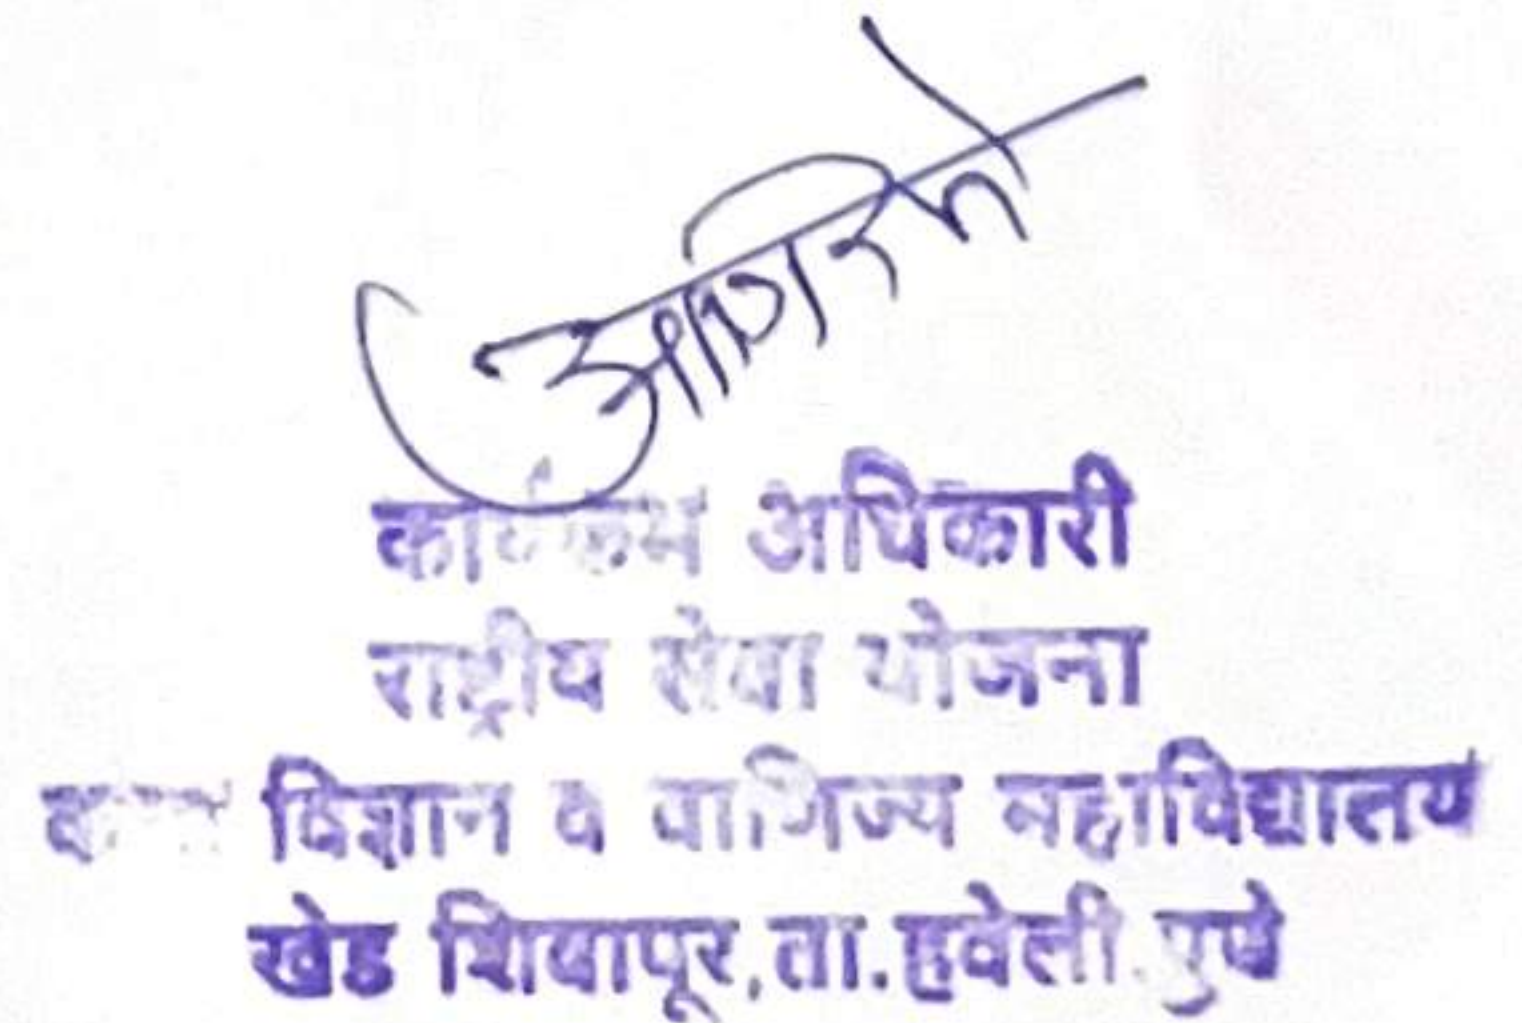 कार्यक्रम अधिकारी
राष्ट्रीय सेवा योजना
विज्ञान व वाणिज्य महाविद्यालय
खेड शिवापूर, ता. हवेली. पुणे